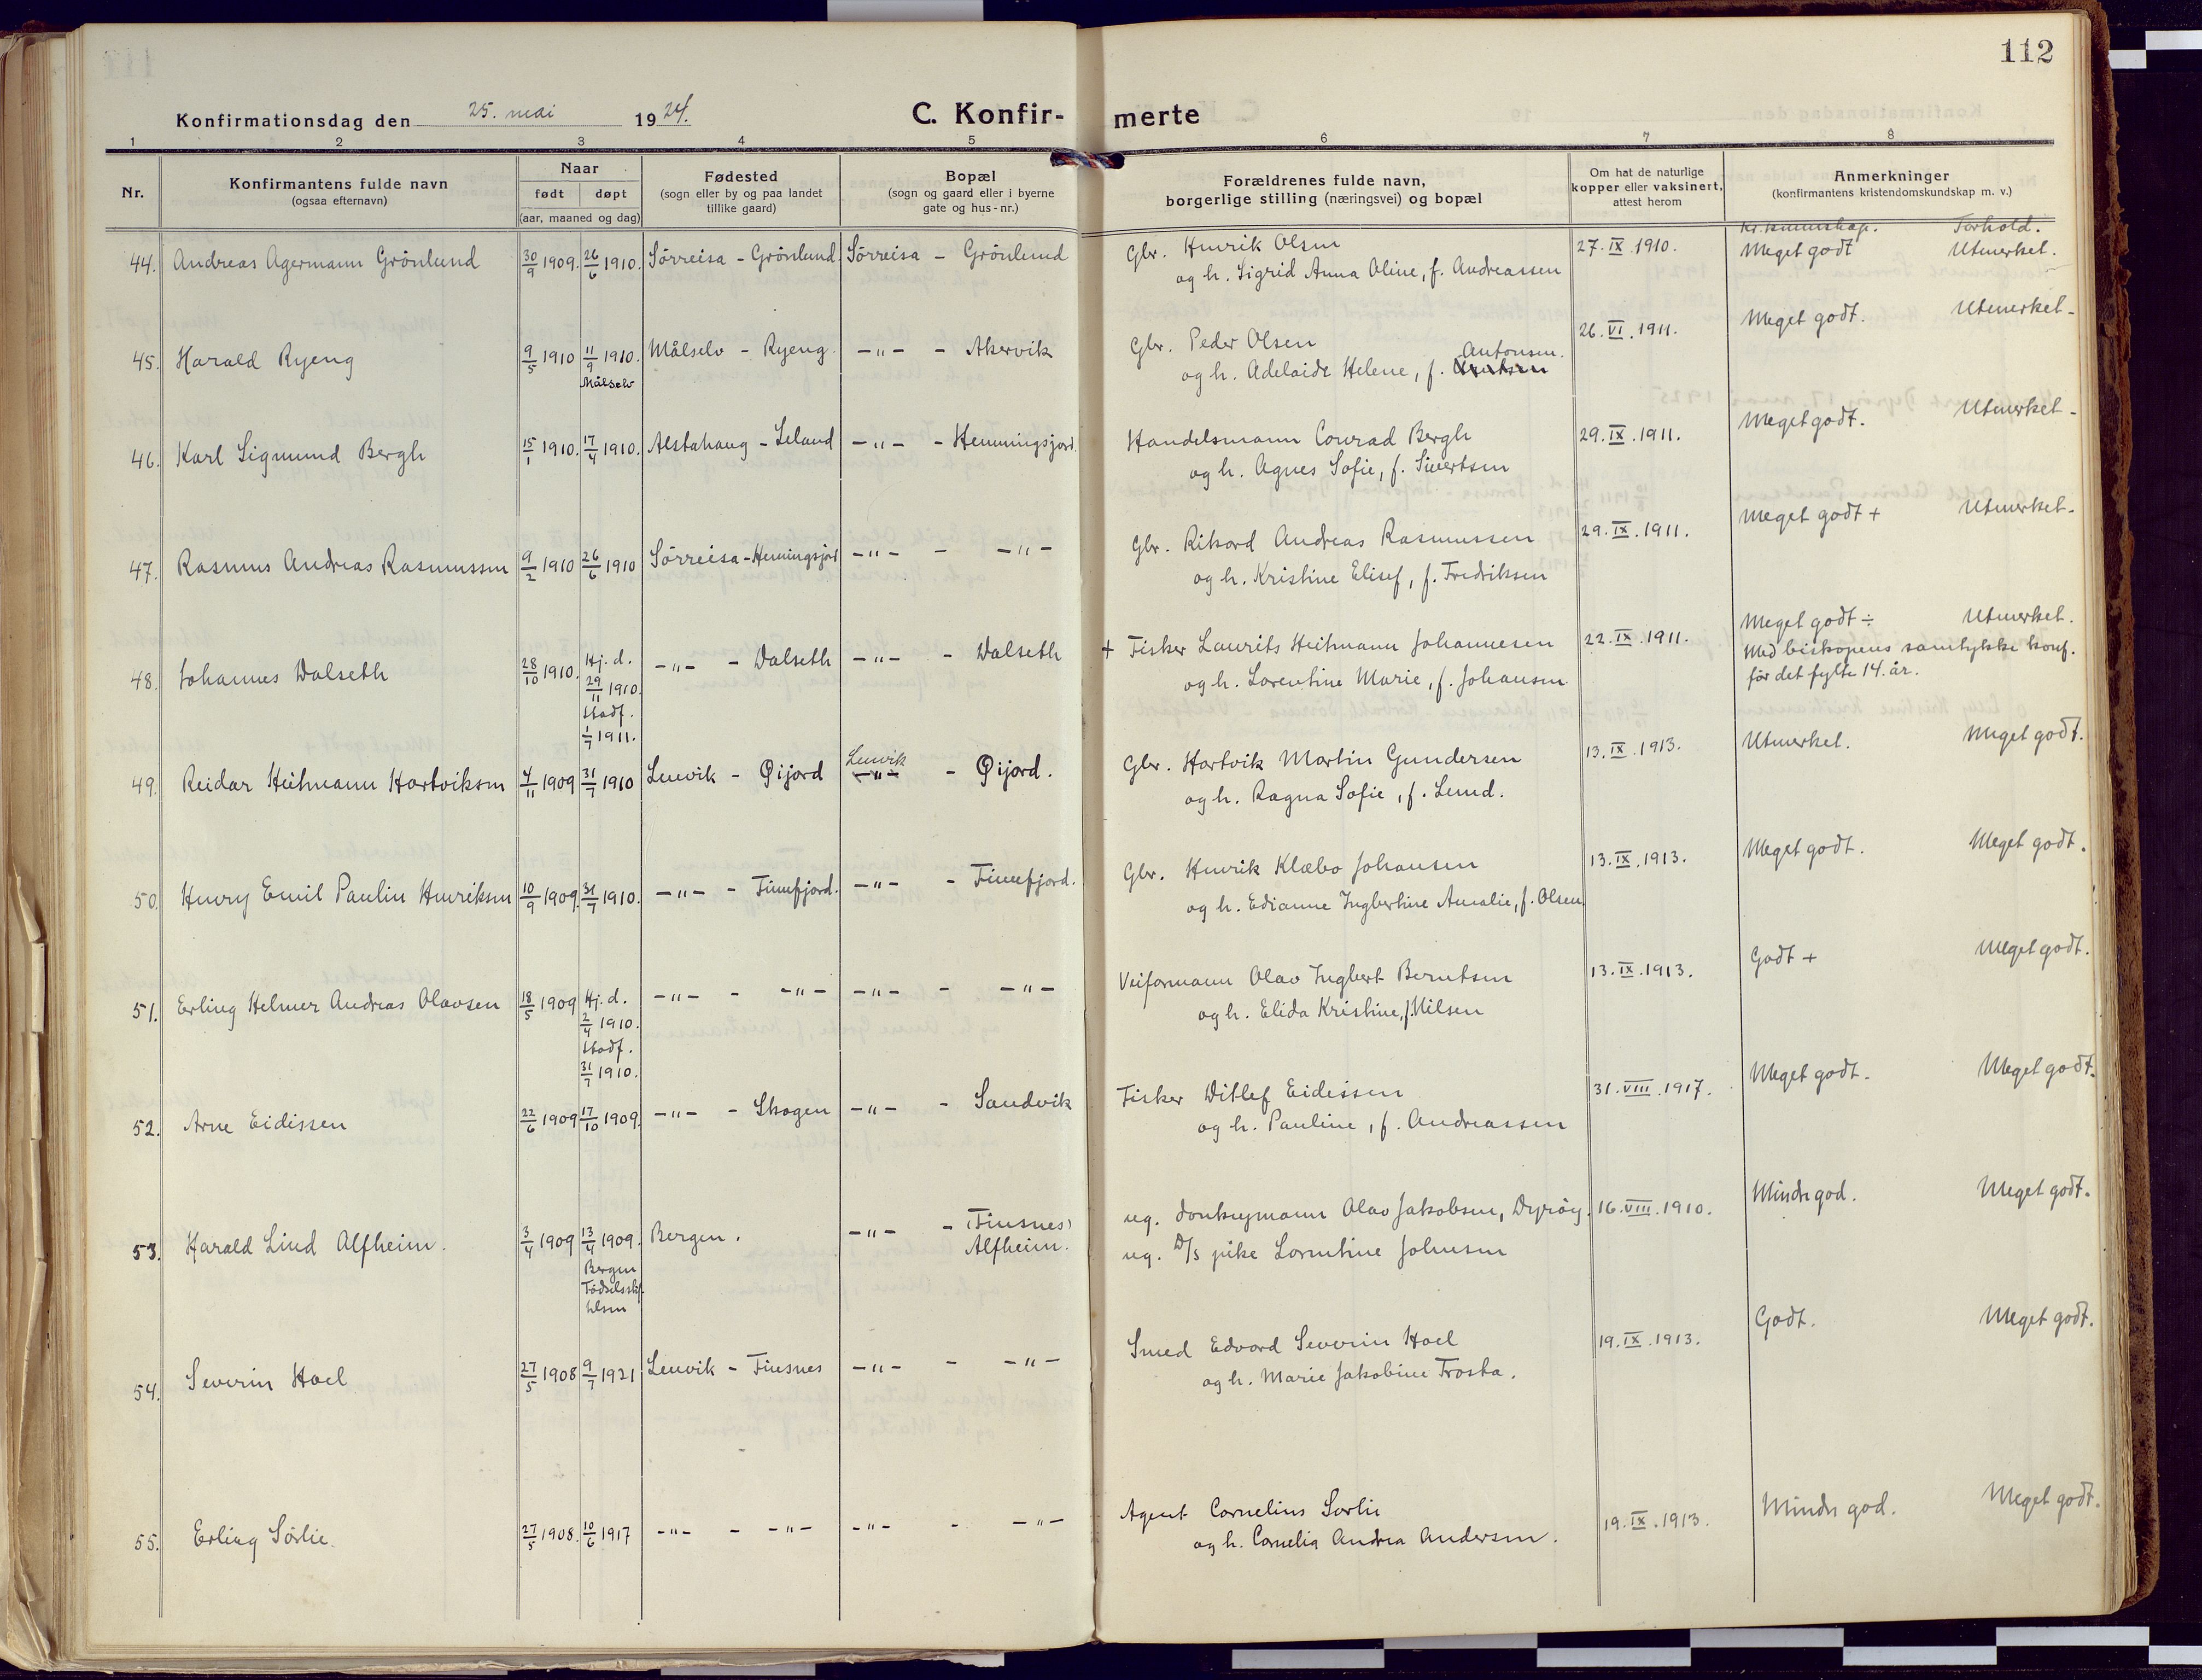 112
Konfirmationsdag den 25. mai 1924. C. Konfir- merte
1 2 3 4 5 6 7 8
Nr. Konfirmantens fulde navn (ogsaa efternavn) Naar født døpt (aar, maaned og dag) Fødested (sogn eller by og paa landet tillike gaard) Bopæl (sogn og gaard eller i byerne gate og hus-nr.) Forældrenes fulde navn, borgerlige stilling (næringsvei) og bopæl Om hat de naturlige kopper eller vaksinert, attest herom Anmerkninger (konfirmantens kristendomskundskap m. v.)
Kr. kunnskap. Forhold.
44. Andreas Agermann Grönlund 30/9 1909. 26/6 1910. Sörreisa - Grönlund. Sörreisa - Grönlund Gbr. Henrik Olsen 27.IX.1910. Meget godt Utmerket.
og h. Sigrid Anna Oline, f. Andreassen
45. Harald Ryeng 9/5 1910 11/9 1910. Målselv - Ryeng. -"- - Akervik Gbr. Peder Olsen 26.VI.1911. Meget godt. Utmerket-
Målselv og h. Adelaide Helene, f. Antonsen.
46. Karl Sigmund Bergh 15/1 1910. 17/4 1910. Alstahaug - Leland -"- - Hemmingsjord. Handelsmann Conrad Bergh 29.IX.1911. Meget godt. Utmerket-
og h. Agnes Sofie, f. Sivertsen
47. Rasmus Andreas Rasmussen 9/2 1910 26/6 1910 Sörreisa - Hemingsjord -"- - -"- Gbr. Rikard Andreas Rasmussen 29.IX.1911. Meget godt + Utmerket-
og h. Kristine Elisef, f. Fredriksen
48. Johannes Dalseth 28/10 1910. Hj.d. 29/11 1910. Stadf. 1/7 1911. -"- - Dalseth -"- - Dalseth + Fisker Laurits Heitmann Johannesen 22.IX.1911. Meget godt ÷ Utmerket.
og h. Lorentine Marie, f. Johansen Med biskopens samtykke konf.
før det fylte 14. år.
49. Reidar Heitmann Hartviksen 4/11 1909 31/7 1910 Lenvik - Øijord Lenvik -"- - Øijord. Gbr. Hartvik Martin Gundersen 13.IX.1913. Utmerket. Meget godt.
og h. Ragna Sofie, f. Lund.
50. Henry Emil Paulin Henriksen 10/9 1909. 31/7 1910. -"- - Finnfjord. -"- - Finnfjord. Gbr. Henrik Klæbo Johansen 13.IX.1913. Meget godt. Meget godt.
og h. Edianne Ingbertine Amalie, f. Olsen
51. Erling Helmer Andreas Olavsen 18/5 1909 Hj.d. 2/4 1910. Stadf. 31/7 1910. -"- - -"- -"- - -"- Veiformann Olav Ingbert Berntsen 13.IX.1913. Godt + Meget godt.
og h. Elida Kristine, f. Nilsen
52. Arne Eidissen 22/6 1909 17/10 1909. -"- - Skogen -"- - Sandvik Fisker Ditlef Eidissen 31.VIII.1917. Meget godt. Meget godt.
og h. Pauline, f. Andreassen
53. Harald Lind Alfheim. 3/4 1909 13/4 1909. Bergen. -"- - (Finsnes) Alfheim. ug. donkeymann Olav Jakobsen, Dyröy. 16.VIII.1910. Mindre god. Meget godt.
Bergen Fødselsstiftelsen ug. D/s pike Lorentine Johnsen
54. Severin Hoel 27/5 1908 9/7 1921 Lenvik - Finsnes -"- - -"- Smed Edvard Severin Hoel 19.IX.1913. Godt. Meget godt.
og h. Marie Jakobine Trosta.
55. Erling Sörlie. 27/5 1908. 10/6 1917 -"- - -"- -"- - -"- Agent Cornelius Sørlie 19.IX.1913. Mindre god. Meget godt.
og h. Cornelia Andrea Andersen.